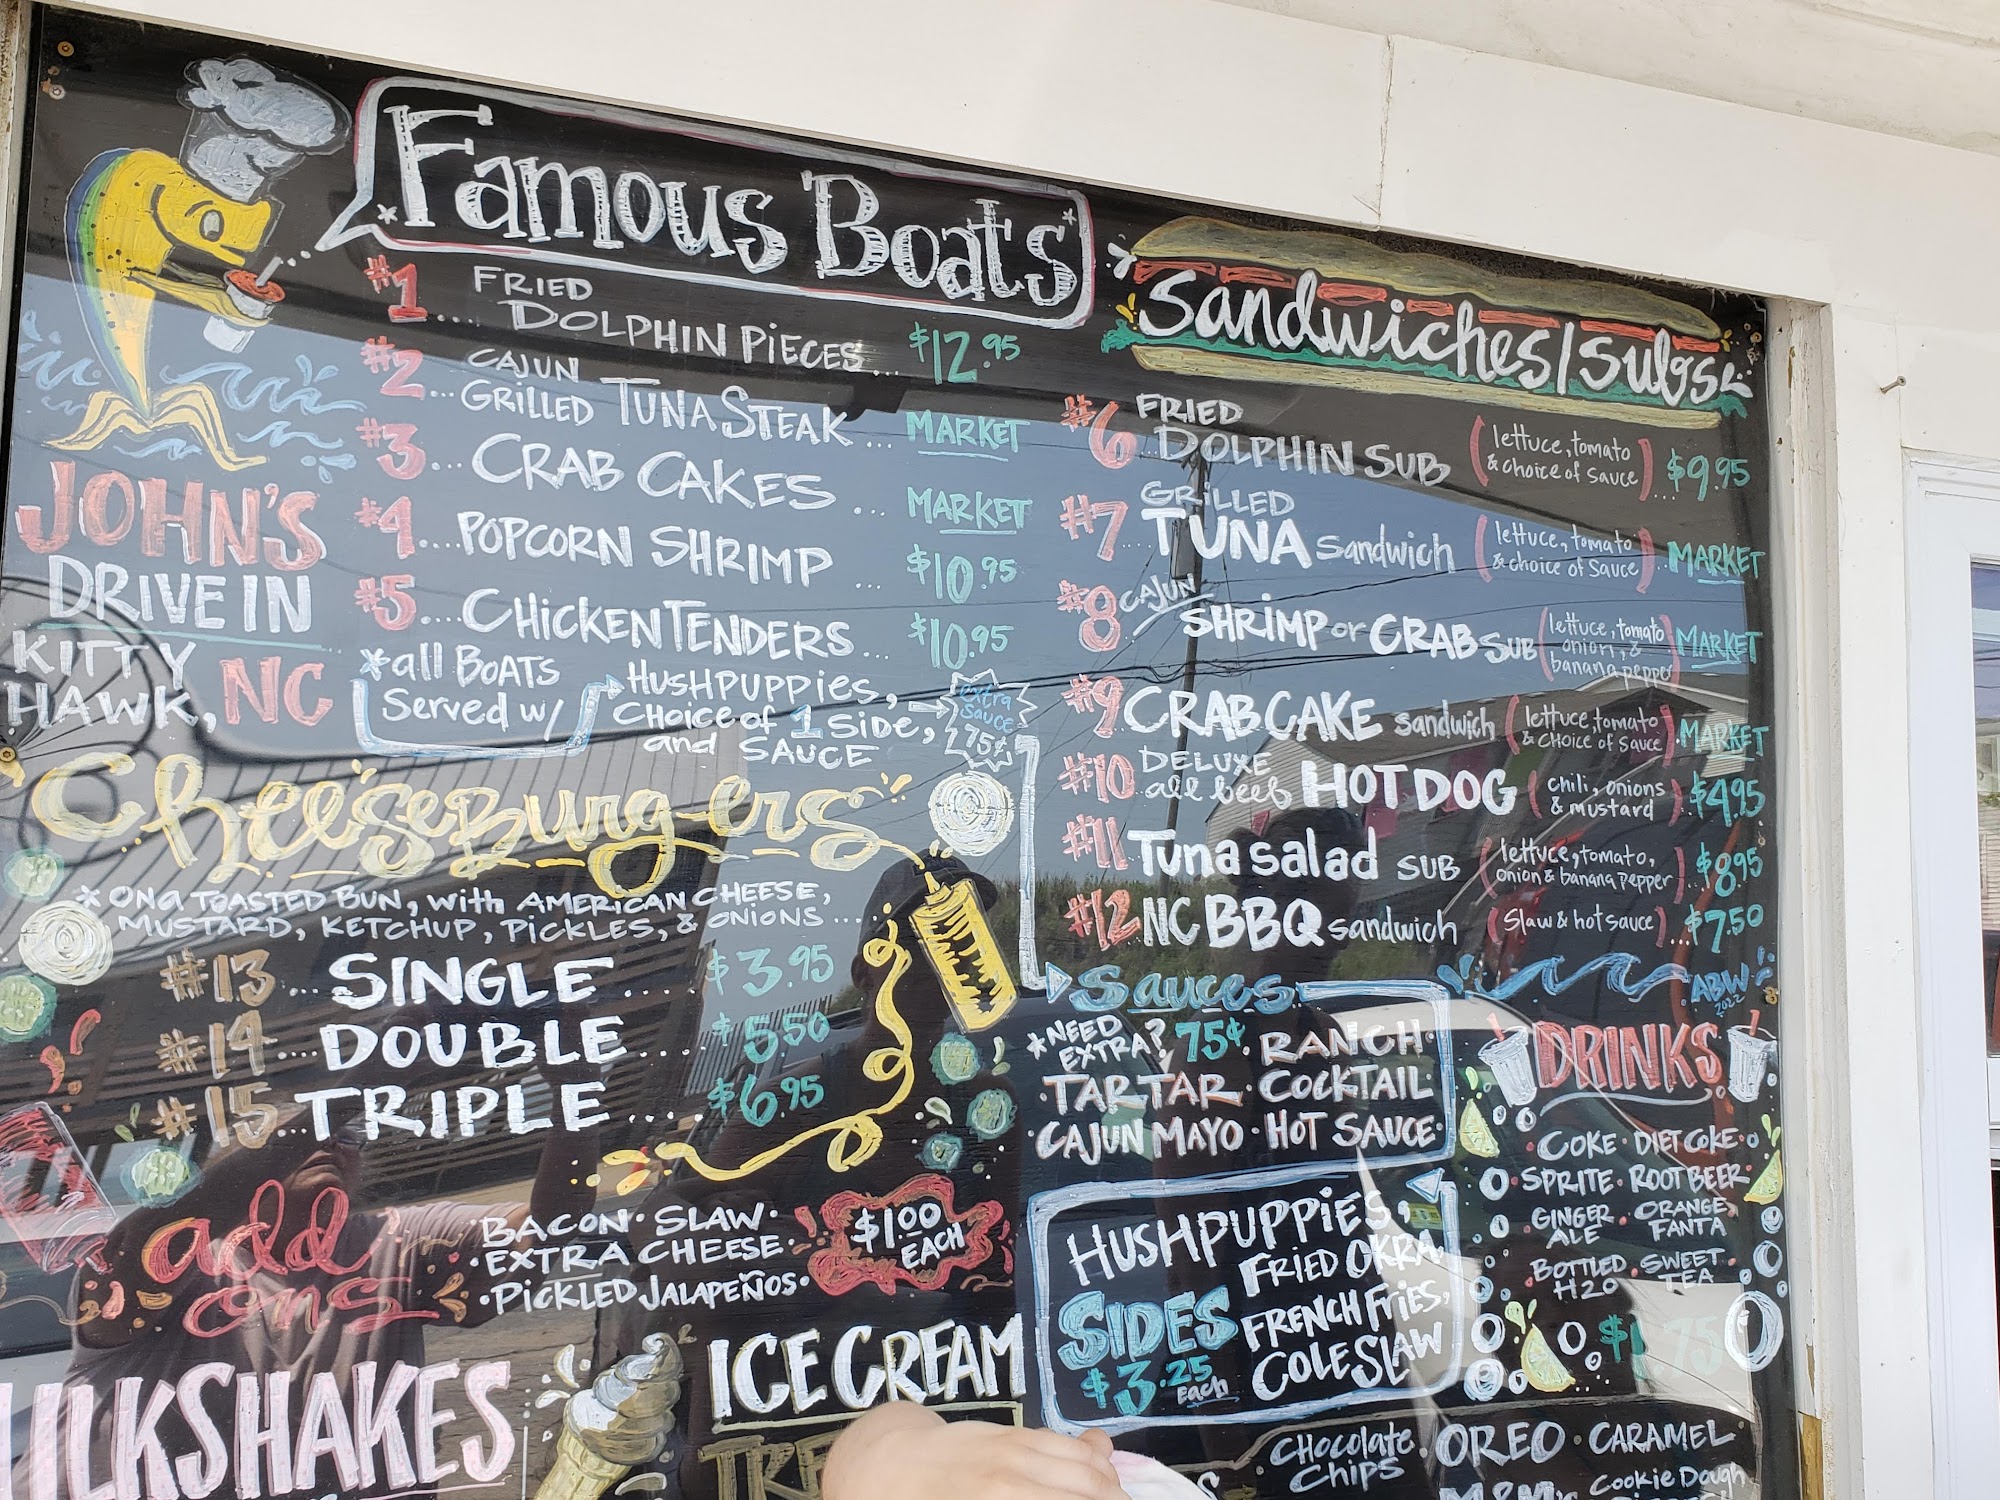 Famous Boats
#1.... FRIED DOLPHIN PIECES... $12.95
#2... CAJUN GRILLED TUNA STEAK... MARKET
#3... CRAB CAKES ... MARKET
#4....POPCORN SHRIMP ... $10.95
#5....CHICKEN TENDERS... $10.95
*all BOATS Served w/
HUSHPUPPIES,
CHOICE of 1 SIDE,
and SAUCE
extra
sauce
75¢
JOHN'S
DRIVE IN
KITTY
HAWK, NC
Sandwiches/Subs
#6 FRIED DOLPHIN SUB (lettuce, tomato & choice of sauce)... $9.95
#7 GRILLED TUNA Sandwich (lettuce, tomato & choice of sauce)... MARKET
#8 CAJUN SHRIMP or CRAB SUB (lettuce, tomato onion, & banana pepper) MARKET
#9 CRAB CAKE sandwich (lettuce, tomato & CHOICE of Sauce). MARKET
#10 DELUXE all beef HOT DOG (chili, onions & mustard) $4.95
#11 Tuna salad SUB (lettuce, tomato, onion & banana pepper).. $8.95
#12 NC BBQ sandwich (Slaw & hot sauce)... $7.50
ABW
2022
Cheeseburgers
* ON a TOASTED BUN, with AMERICAN CHEESE,
MUSTARD, KETCHUP, PICKLES, & ONIONS....
#13... SINGLE .... $3.95
#14....DOUBLE.... $5.50
#15...TRIPLE.... $6.95
add
ons
BACON · SLAW ·
· EXTRA CHEESE ·
· PICKLED JALAPEÑOS ·
$1.00
EACH
Sauces
*NEED EXTRA? 75¢ · RANCH ·
· TARTAR · COCKTAIL ·
· CAJUN MAYO · HOT SAUCE ·
HUSHPUPPIES,
FRIED OKRA,
FRENCH FRIES,
COLESLAW
SIDES
$3.25
each
DRINKS
COKE · DIET COKE ·
SPRITE · ROOT BEER ·
GINGER ALE · ORANGE FANTA
· BOTTLED H2O · SWEET TEA ·
$1.75
MILKSHAKES
ICE CREAM
CHOCOLATE CHIPS · OREO · CARAMEL ·
M&M's
COOKIE DOUGH